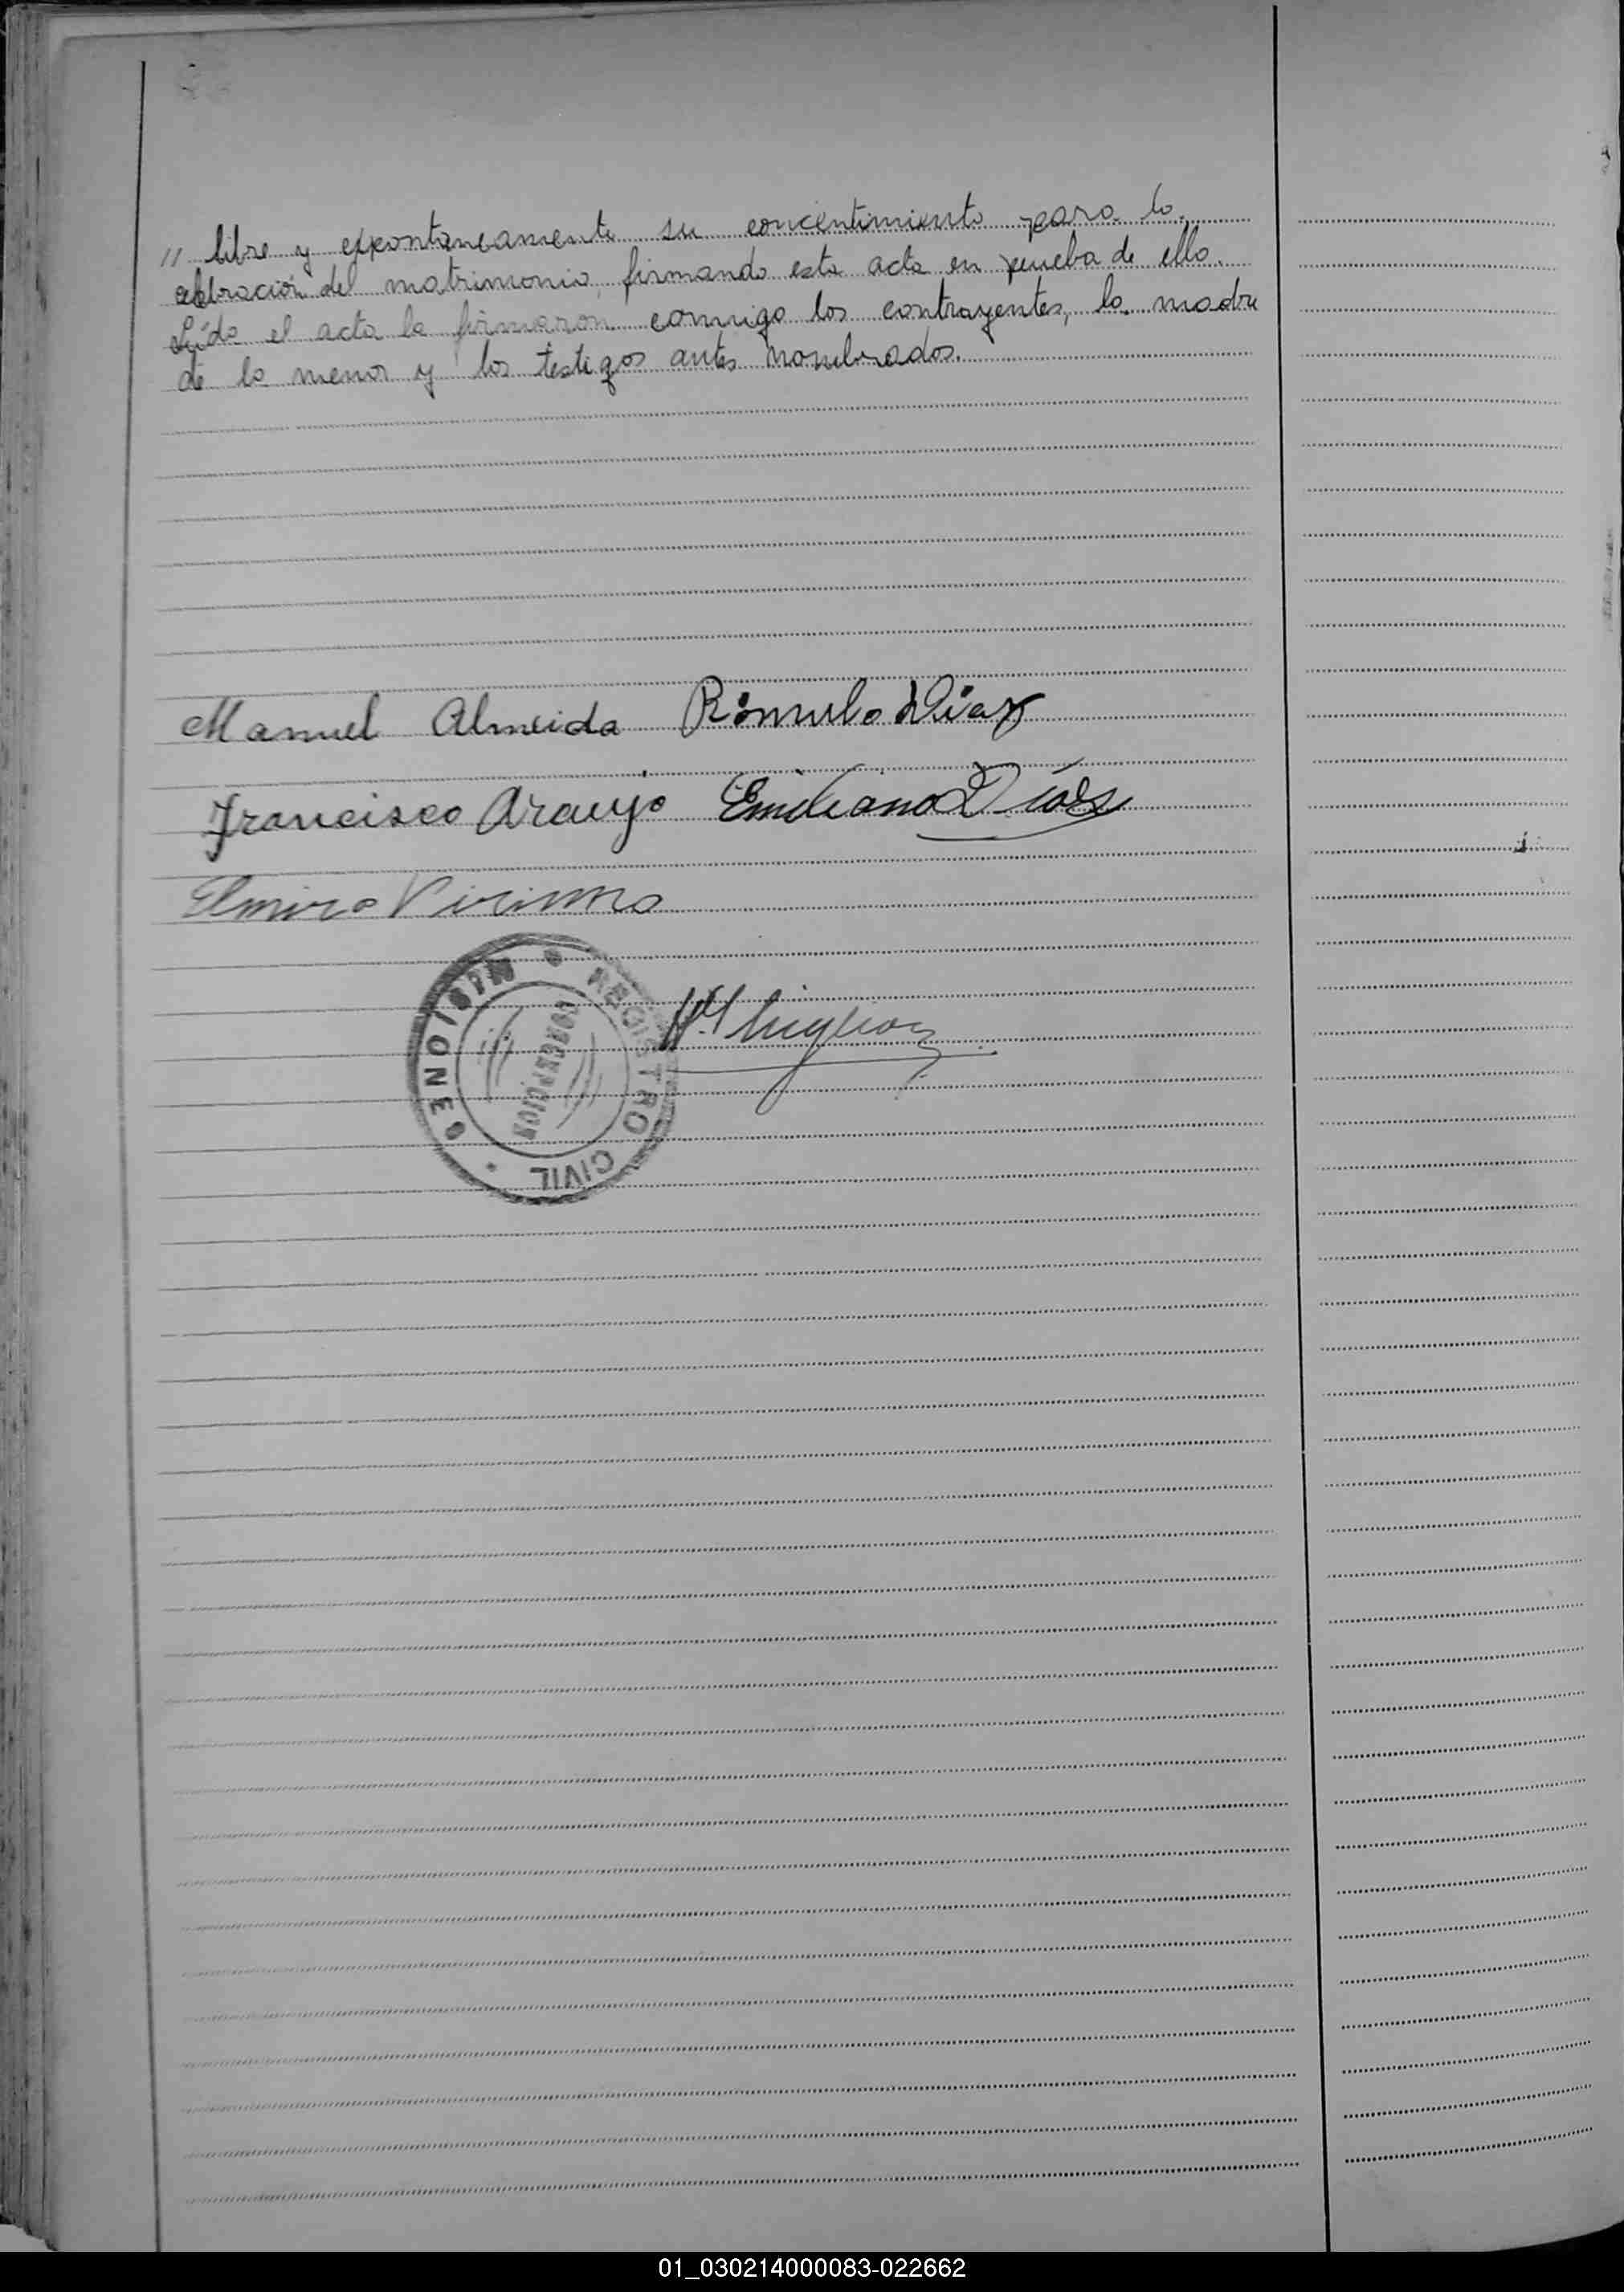 " libre y expontaneamente su concentimiento para la
celebración del matrimonio, firmando esta acta en prueba de ello.
Leída el acta la firmaron conmigo los contrayentes, la madre
de la menor y los testigos antes nombrados.
Manuel Almeida Rómulo Diaz
Francisco Araujo Emiliano Díaz
Elmira
REGISTRO CIVIL
CONCEPCION
01_030214000083-022662